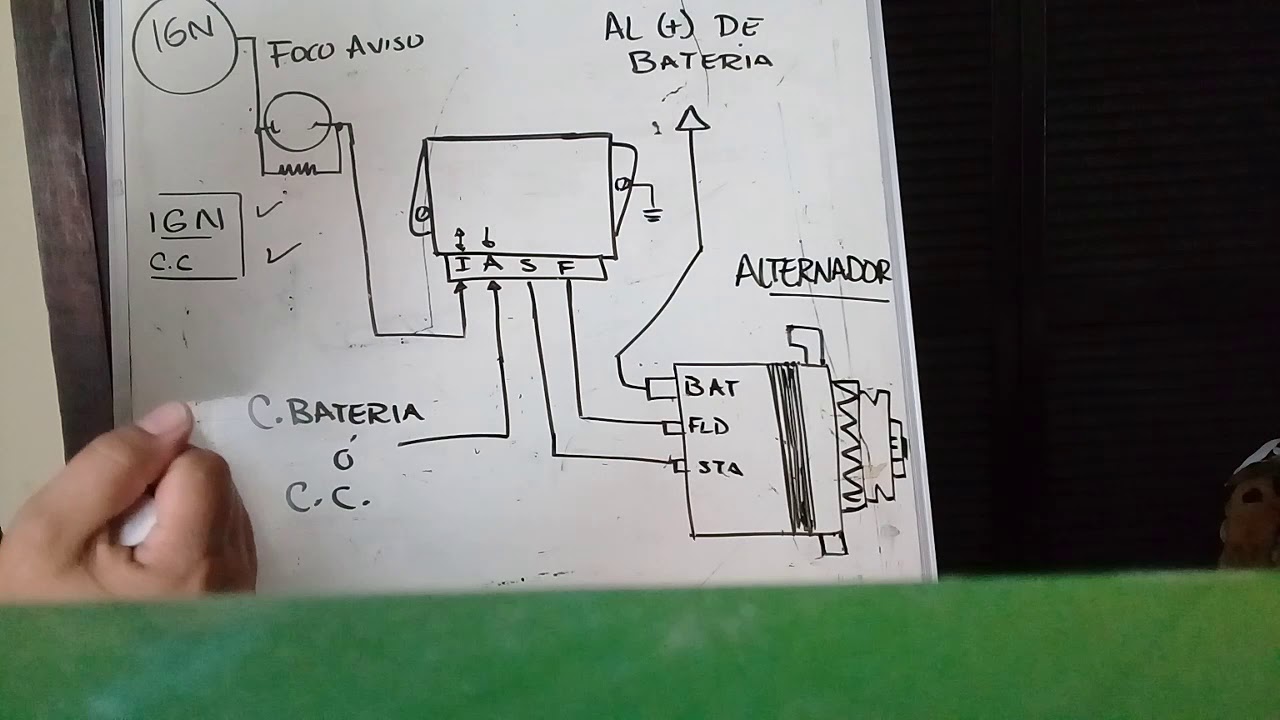 IGN
FOCO AVISO
AL (+) DE
BATERIA
IGN
C.C
I A S F
ALTERNADOR
C. BATERIA
Ó
C.C.
BAT
FLD
STA